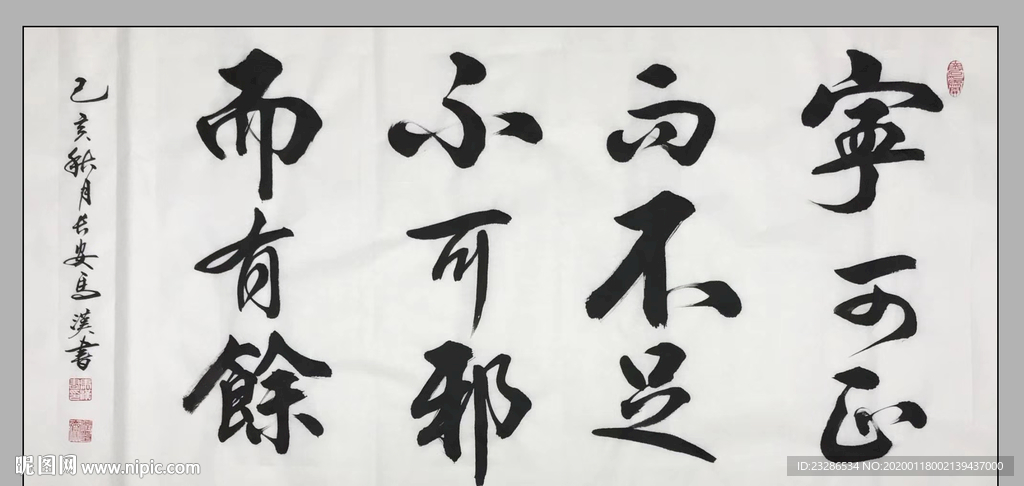 寧可正
而不足
不可邪
而有餘
己亥秋月长安馬漢書
昵图网 www.nipic.com
ID:23286534 NO:20200118002139437000